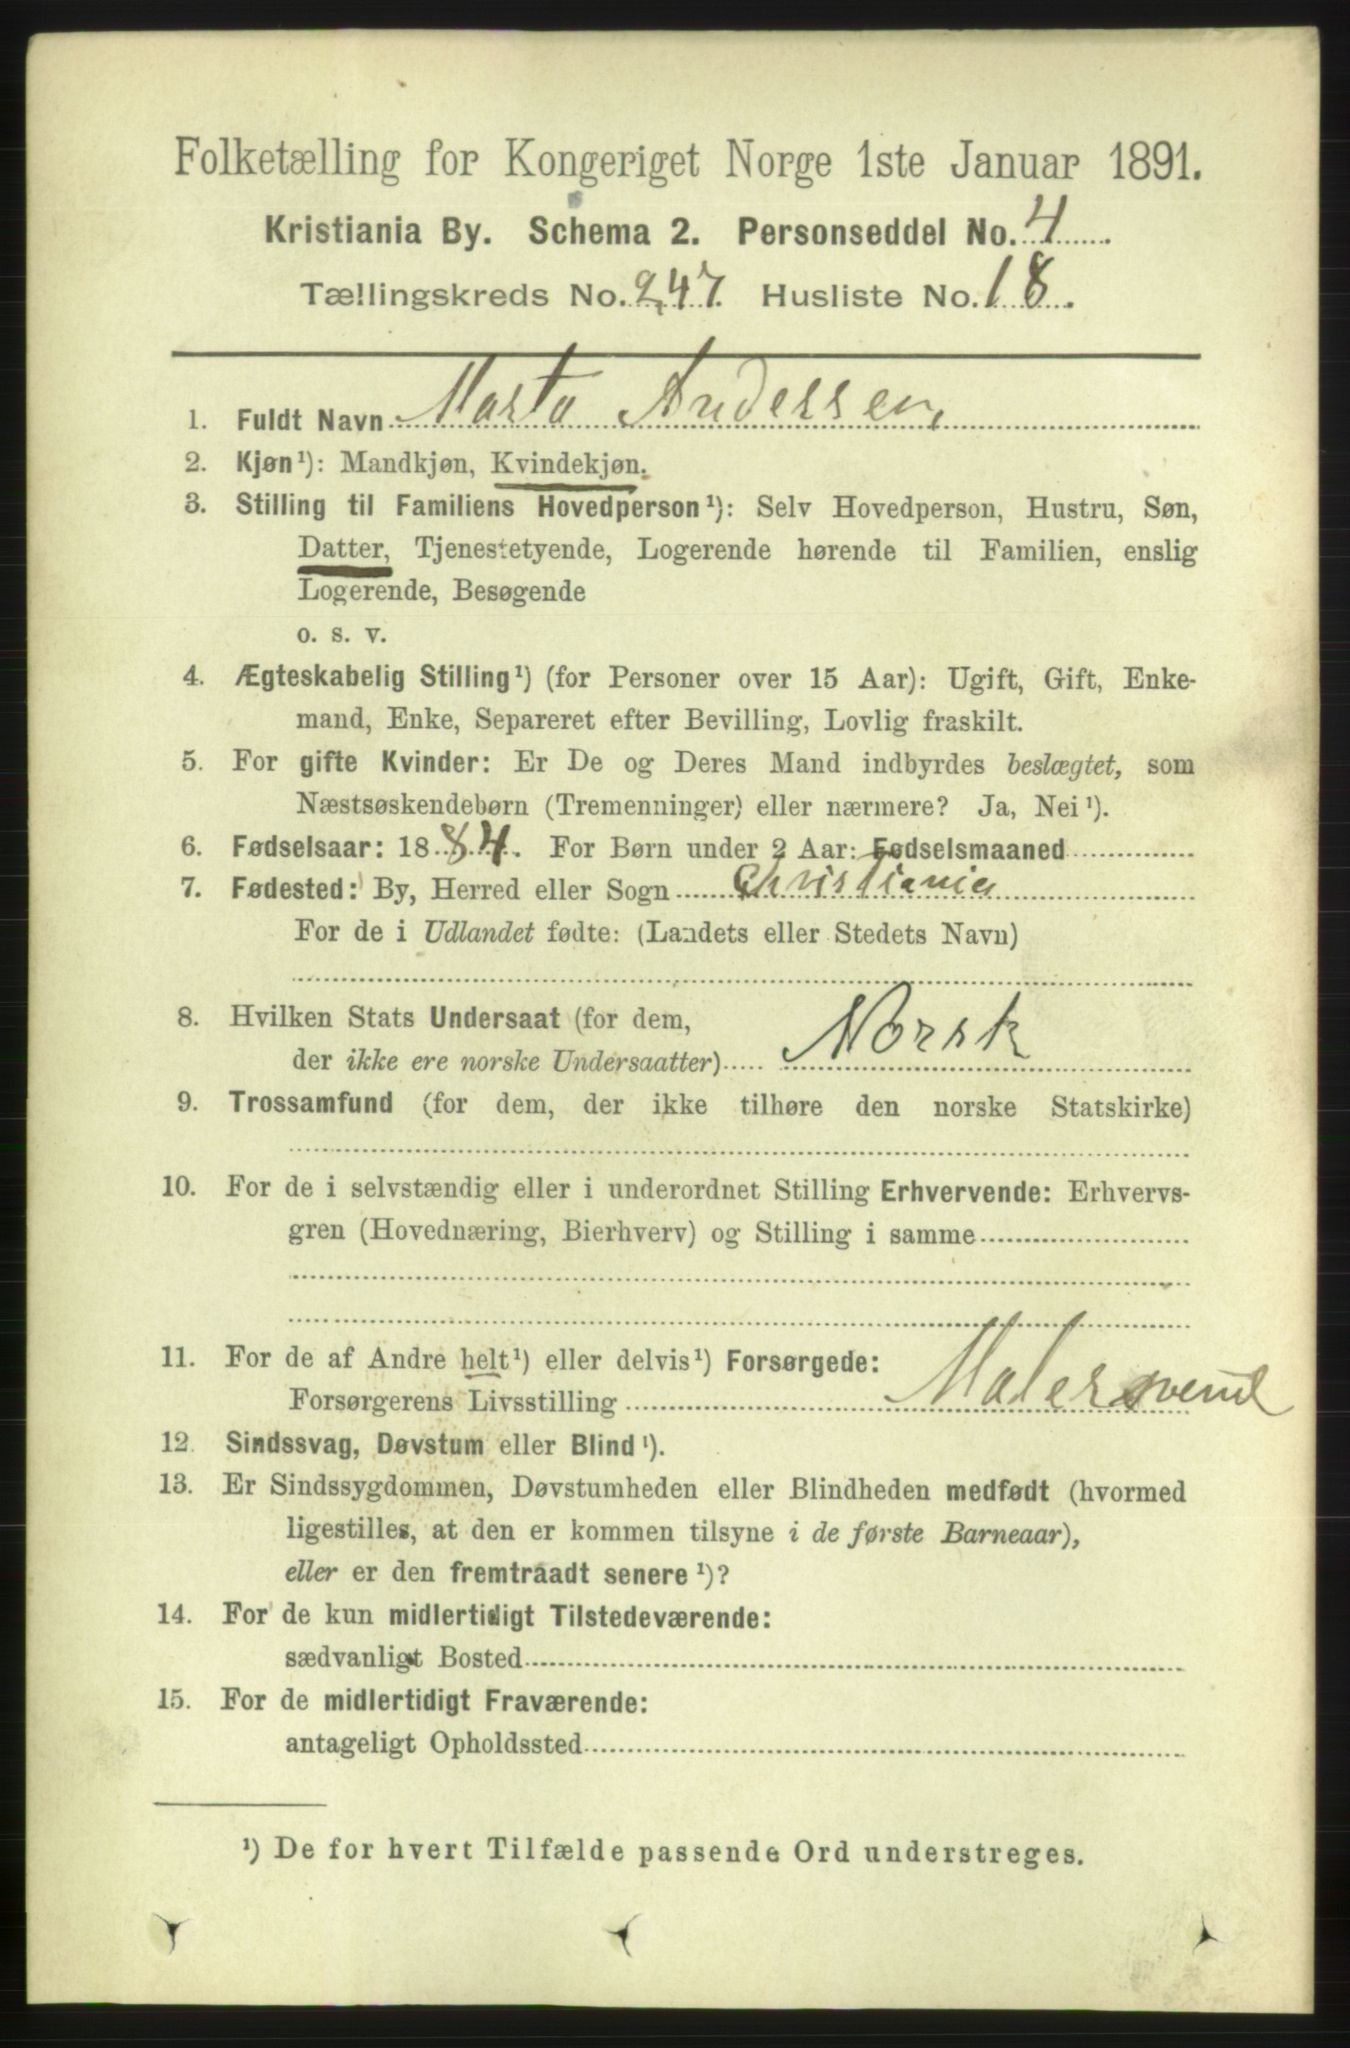 Folketælling for Kongeriget Norge 1ste Januar 1891.
Kristiania By. Schema 2. Personseddel No. 4
Tællingskreds No. 247. Husliste No. 18.
1. Fuldt Navn Marta Anderssen,
2. Kjøn¹): Mandkjøn, Kvindekjøn.
3. Stilling til Familiens Hovedperson¹): Selv Hovedperson, Hustru, Søn,
Datter, Tjenestetyende, Logerende hørende til Familien, enslig
Logerende, Besøgende
o. s. v.
4. Ægteskabelig Stilling¹) (for Personer over 15 Aar): Ugift, Gift, Enke-
mand, Enke, Separeret efter Bevilling, Lovlig fraskilt.
5. For gifte Kvinder: Er De og Deres Mand indbyrdes beslægtet, som
Næstsøskendebørn (Tremenninger) eller nærmere? Ja, Nei¹).
6. Fødselsaar: 1884. For Børn under 2 Aar: Fødselsmaaned
7. Fødested: By, Herred eller Sogn Christiania
For de i Udlandet fødte: (Landets eller Stedets Navn)
8. Hvilken Stats Undersaat (for dem,
der ikke ere norske Undersaatter) Norsk
9. Trossamfund (for dem, der ikke tilhøre den norske Statskirke)
10. For de i selvstændig eller i underordnet Stilling Erhvervende: Erhvervs-
gren (Hovednæring, Bierhverv) og Stilling i samme
11. For de af Andre helt¹) eller delvis¹) Forsørgede:
Forsørgerens Livsstilling Malersvend
12. Sindssvag, Døvstum eller Blind¹).
13. Er Sindssygdommen, Døvstumheden eller Blindheden medfødt (hvormed
ligestilles, at den er kommen tilsyne i de første Barneaar),
eller er den fremtraadt senere¹)?
14. For de kun midlertidigt Tilstedeværende:
sædvanligt Bosted
15. For de midlertidigt Fraværende:
antageligt Opholdssted
¹) De for hvert Tilfælde passende Ord understreges.